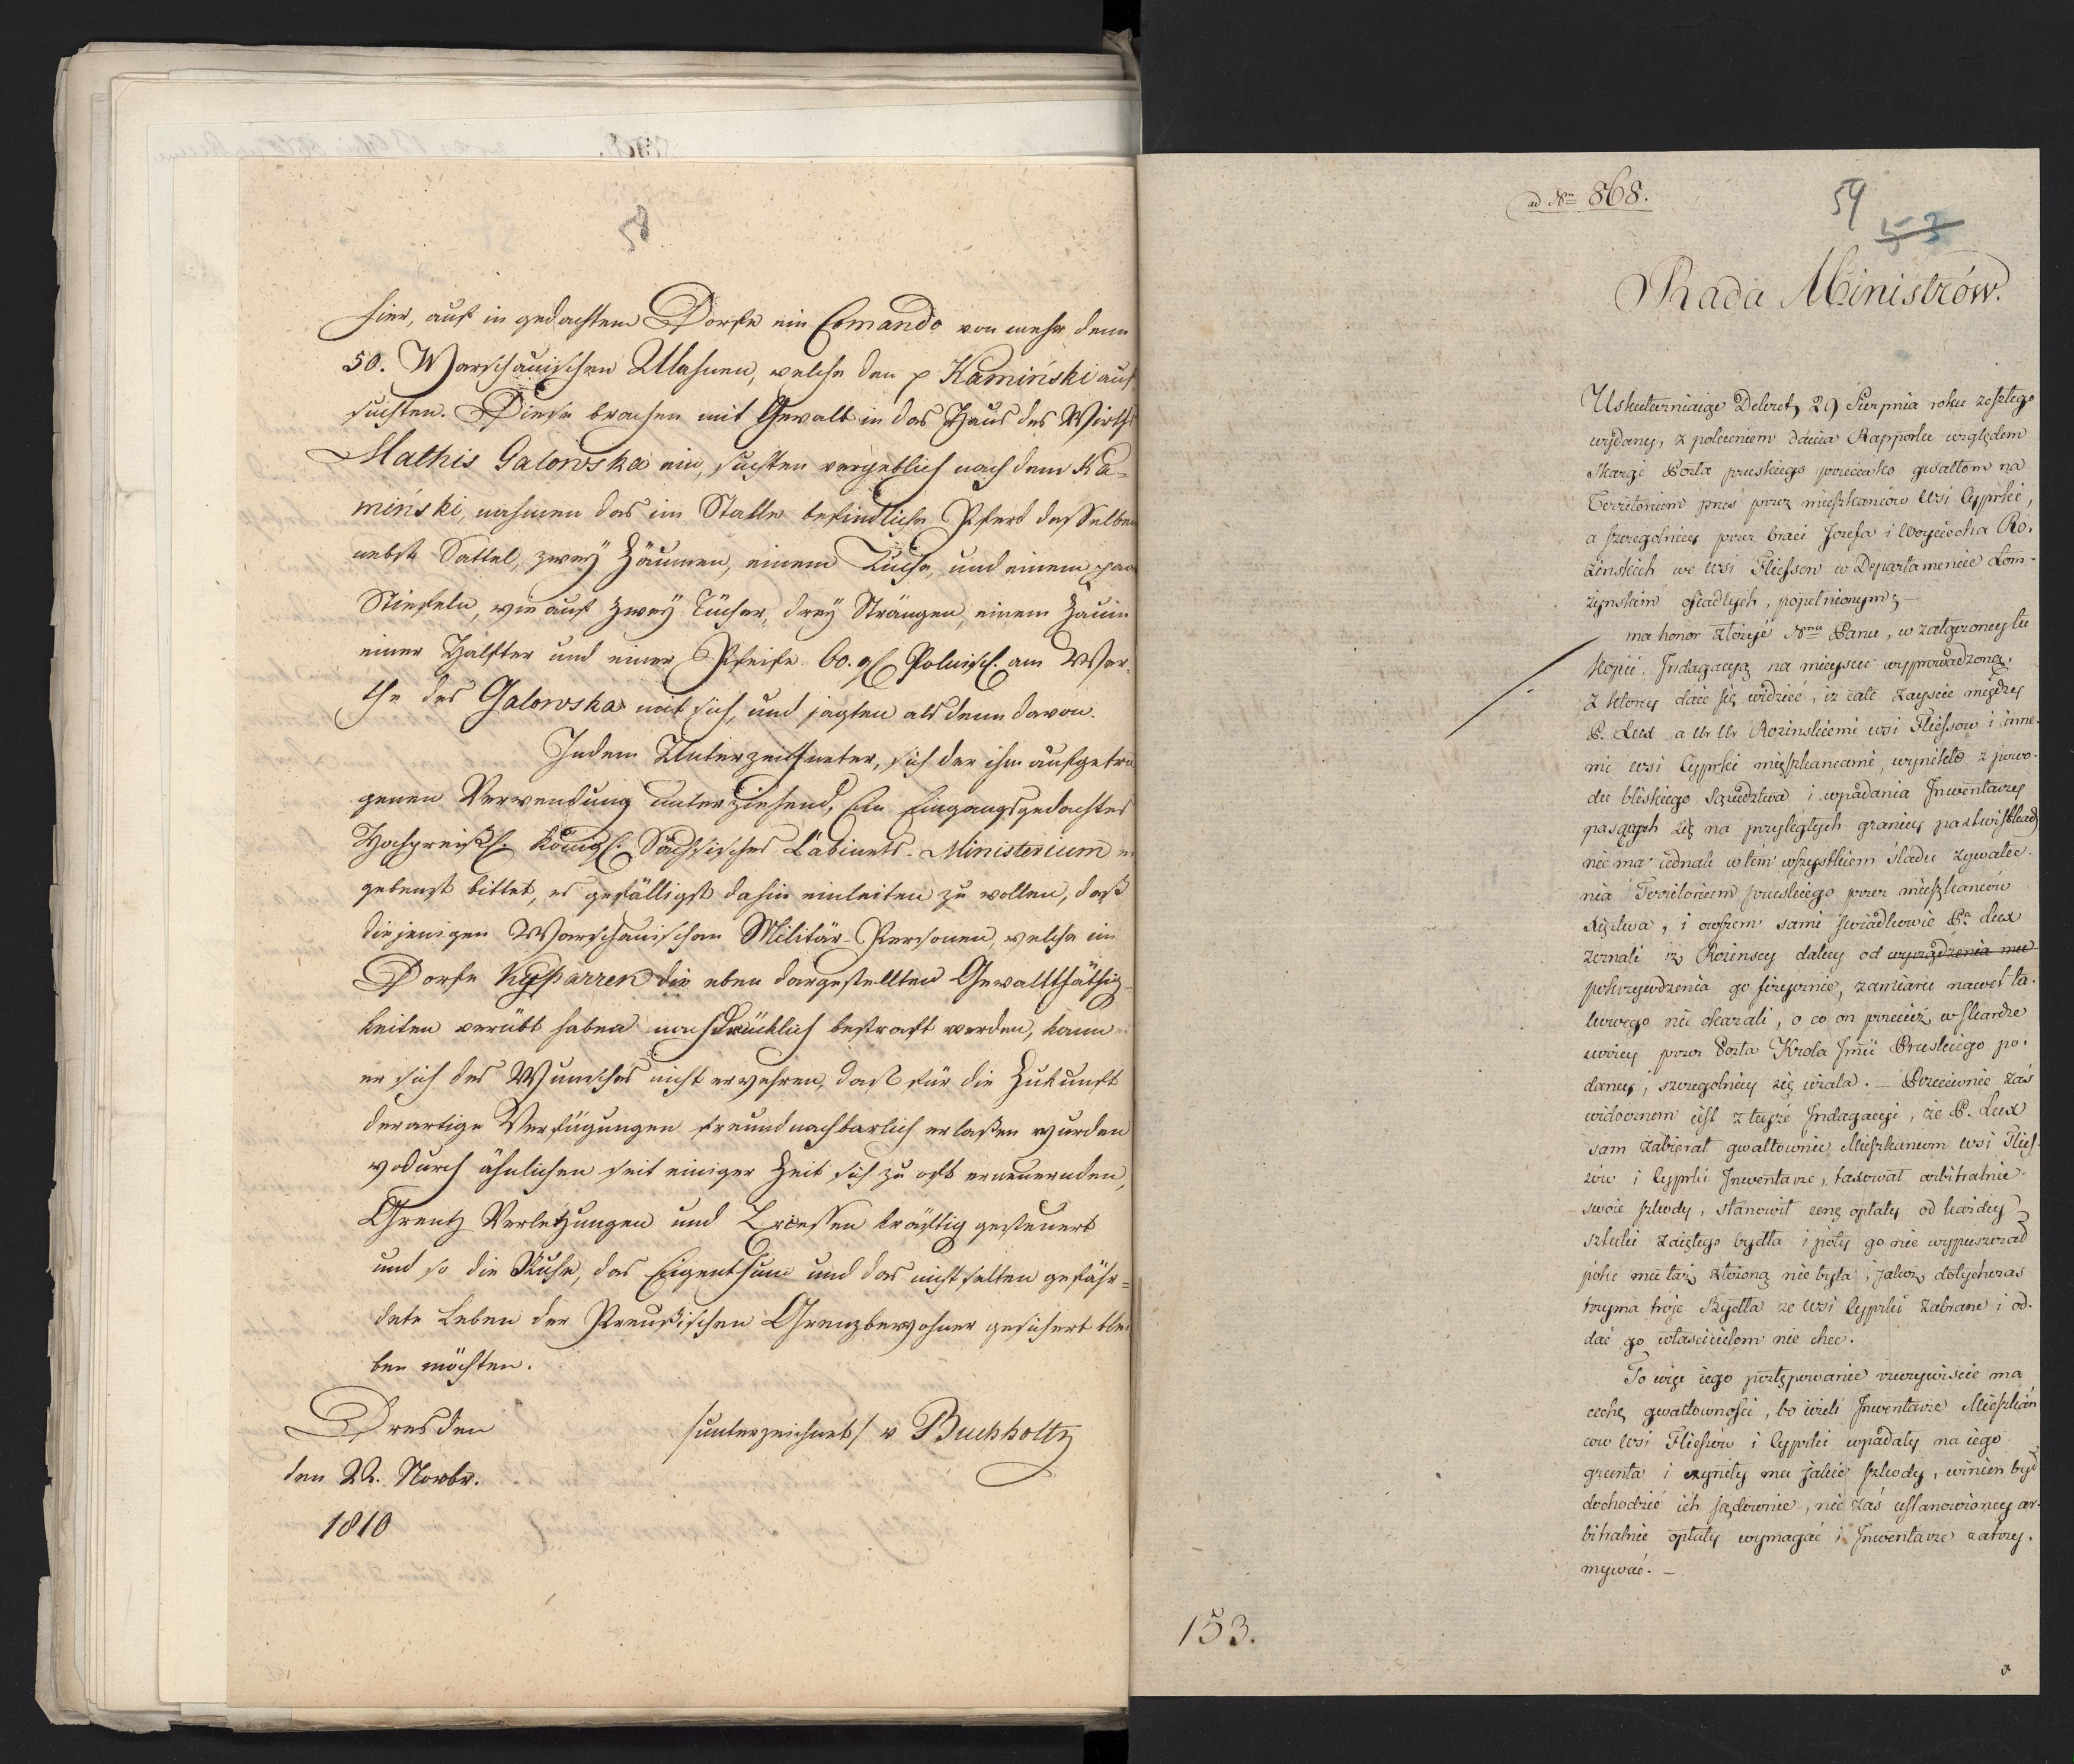 58
hier, auf in gedachtem Dorfe ein Comando von mehr denn
50. Warschauischen Ulahnen, welche den p Kamiński auf
suchten. Diese brachen mit Gewalt in das Haus des Wirths
Mathis Galonska ein, suchten vergeblich nach dem Ka-
miński, nahmen das im Stalle befindliche Pferd desselben
nebst Sattel, zwey Zäumen, einem Tuche, und einem paar
Stiefeln, wie auch zwey Tücher, drey Strängen, einem Zaum
einer Halfter und einer Pfeife 60. gl Polnisch. am Wer-
the des Galonska mit sich, und jagten als denn davon.
Indem Unterzeichneter, sich der ihm aufgetra
genen Verwendung unterziehend, Ein Eingangsgedachtes
Hochpreißl. Königl. Sächsisches Cabinets-Ministerium er
gebenst bittet, es gefälligst dahin einleiten zu wollen, daß
diejenigen Warschauischen Militär-Personen, welche im
Dorfe Kysparren die eben dargestellten Gewaltthätig-
keiten verübt haben nachdrücklich bestraft werden, kann
er sich des Wunsches nicht erwehren, daß für die Zukunft
derartige Verfügungen freundnachbarlich erlaßen wurden
wodurch ähnlichen seit einiger Zeit sich zu oft erneuernden,
Grentz Verletzungen und Excessen kräftig gesteuert
und so die Ruhe, das Eigenthum und das nicht selten gefähr-
dete Leben der Preußischen Grenzbewohner gesichert blei
ben möchten.
Dresden /unterzeichnet/ v Buchholtz
den 22. Novbr.
1810
ad Nrm 868.
59
53
Rada Ministrów.
Uskuteczniaiąc Dekret, 29 Sierpnia roku zeszłego
wydany, z poleceniem dania Rapportu względem
Skargi Posła pruskiego przeciwko gwałtom na
Territorium prus: przez mieszkańców Wsi Cyprki,
a szczególniey przez braci Jozefa i Woyciecha Ro-
zinskich we wsi Fliessow w Departamencie Łom-
żynskim osiadłych, popełnionym;
ma honor złożyć Nmu Panu, w załączoney tu
kopii, Indagacyą na mieyscu wyprowadzoną,
z ktorey daie się widzieć, iż całe zayście między
P. Lux a Ur Ur Rozinskiemi wsi Fliessow i inne-
mi wsi Cyprki mieszkańcami, wynikło z powo-
du bliskiego Sąsiedztwa i wpadania Inwentarzy
pasących się na przyległych granicy pastwiskach
nie ma iednak w tem wszystkiem śladu zgwałce-
nia Territorium pruskiego przez mieszkańców
Xięstwa, i owszem sami świadkowie Pa Lux
zeznali iż Rozinscy dalecy od wyrządzenia mu
pokrzywdzenia go fizycznie, zamiaru nawet ta-
kowego nie okazali, o co on przecież w skardze
swoiey przez Posła Krola Jmci Pruskiego po-
daney, szczególniey się użala. — Przeciwnie zaś
widocznem iest z teyże Indagacyi, że P. Lux
sam zabierał gwałtownie Mieszkańcom wsi Flies-
sow i Cyprki Inwentarze, taxował arbitralnie
swoie szkody, stanowił cenę opłaty od każdey
sztuki zaiętego bydła i póty go nie wypuszczał
póki mu taż złożoną nie była, jakoż dotychczas
trzyma troje Bydła ze wsi Cyprki zabrane i od-
dać go właścicielom nie chce.
To więc iego postępowanie rzeczywiście ma
cechę gwałtowności, bo ieżeli Inwentarze Mieszkań
cow wsi Fliessow i Cyprki wpadały na iego
grunta i czyniły mu jakie szkody, winien był
dochodzić ich sądownie, nie zaś ustanowioney ar-
bitralnie opłaty wymagać i Inwentarze zatrzy-
mywać. —
153.